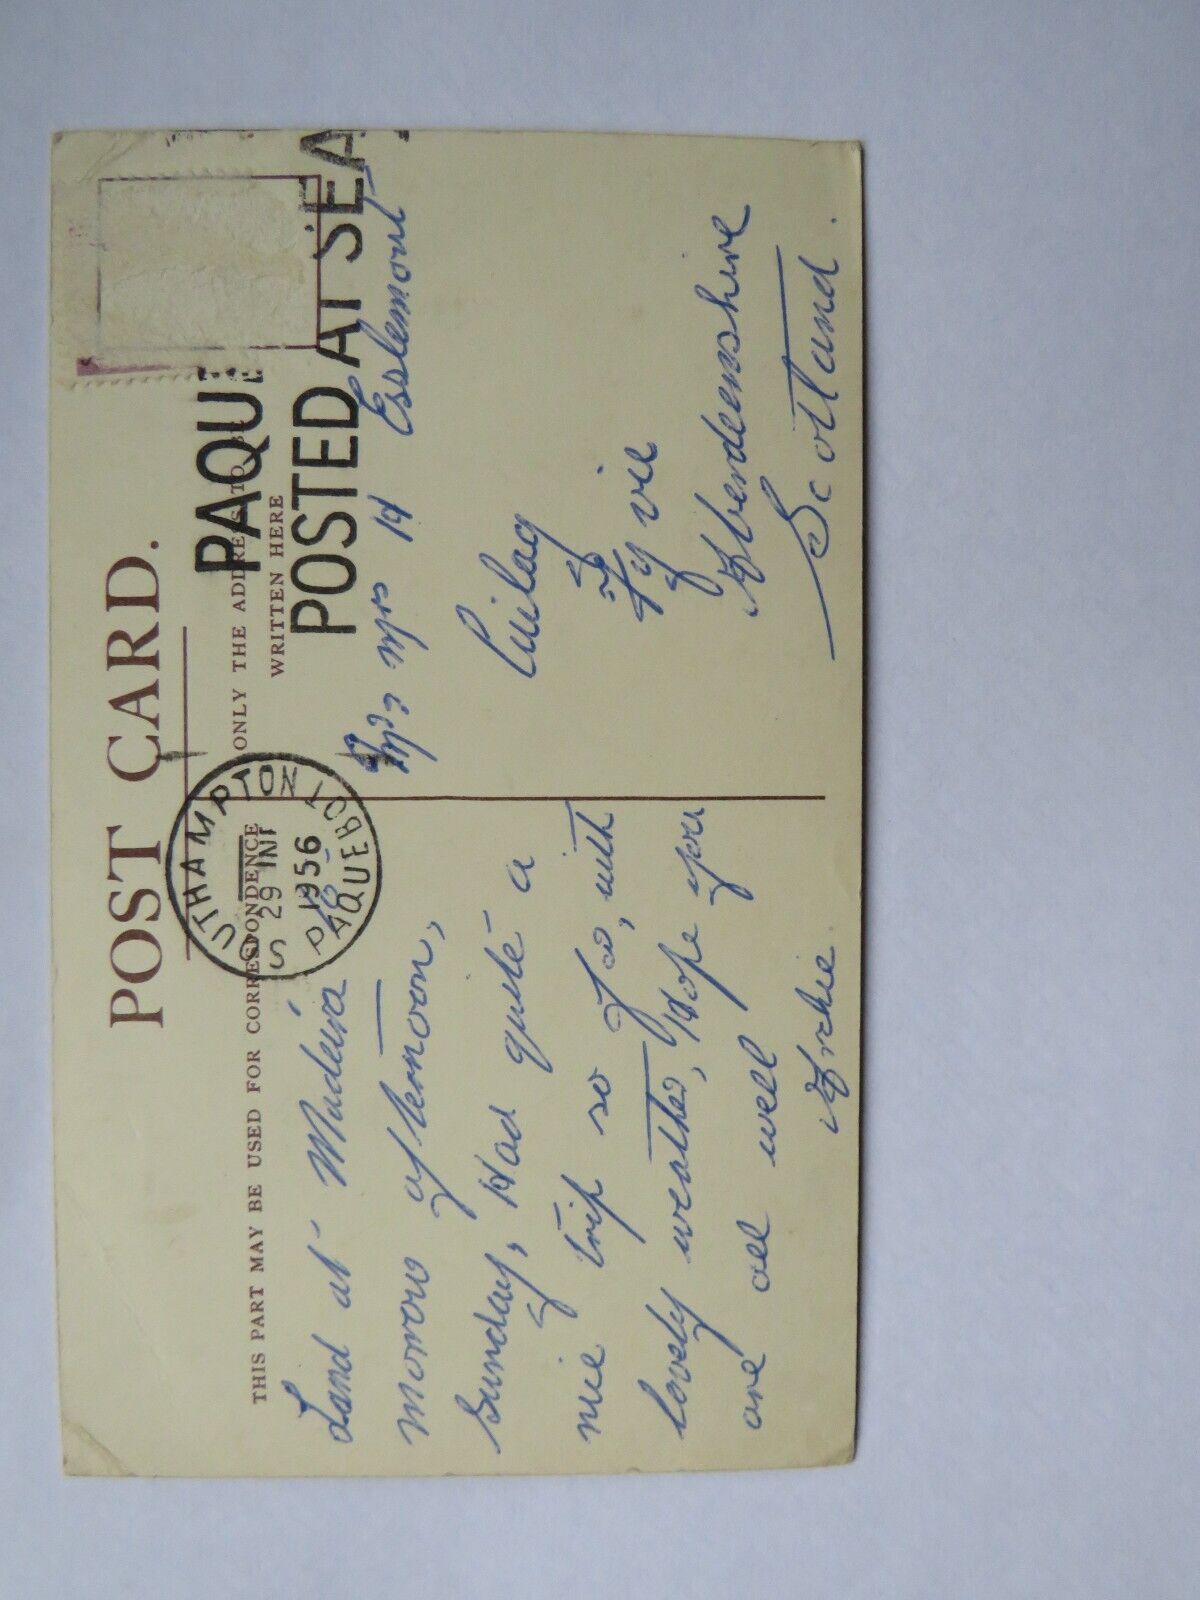 POST CARD.
THIS PART MAY BE USED FOR CORRESPONDENCE
ONLY THE ADDRESS TO
WRITTEN HERE
UTHAMPTON
29
1956
PAQUEBOT
PAQUE
POSTED AT SEA
Land at Madeira
morrow afternoon,
Sunday, Had quite a
nice trip so far, with
lovely weather, Hope you
are all well
Archie.
Mr & Mrs H Esslemont
Fyvie
Aberdeenshire
Scotland.